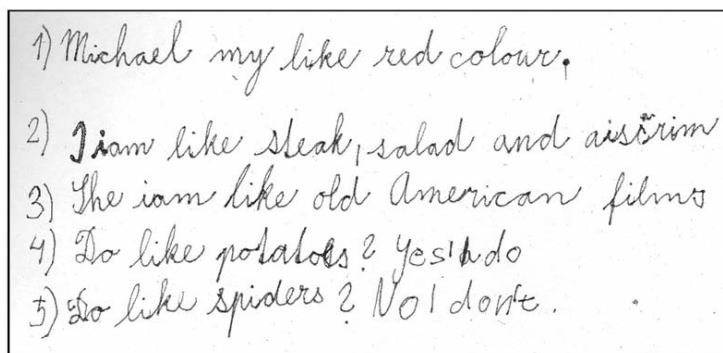 1) Michael my like red colour.
2) I iam like steak, salad and aisčrim
3) The iam like old American films
4) Do like potatoes? Yes I do
5) Do like spiders? No I don't.